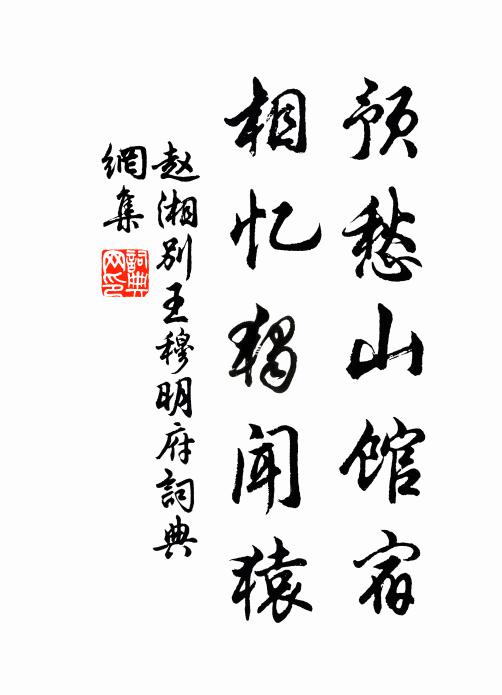 预愁山馆宿
相忆独闻猿
赵湘别王穆明府詞典
網集
詞典
网印